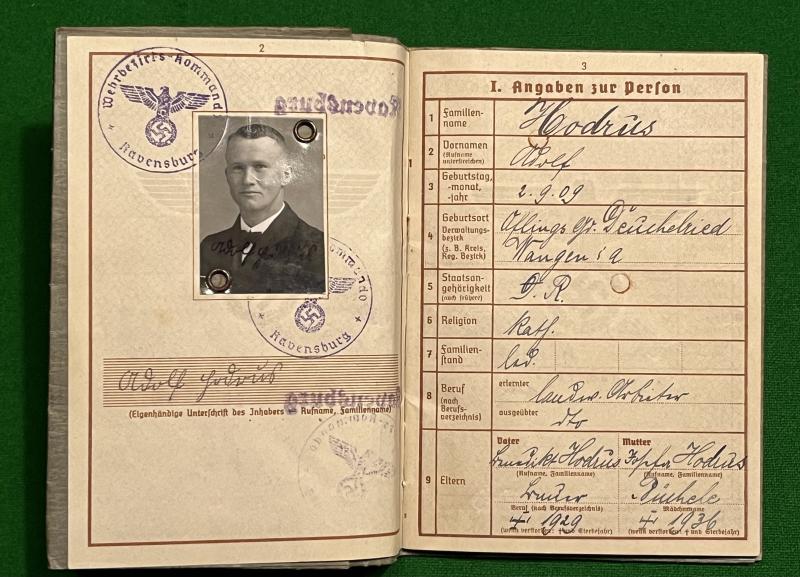 2
Wehrbezirks-Kommando
Ravensburg
Ravensburg
Kommando
Ravensburg
Adolf Hodrus
(Eigenhändige Unterschrift des Inhabers Rufname, Familienname)
Ravensburg
3
I. Angaben zur Person
1 Familienname Hodrus
2 Vornamen (Rufname unterstreichen) Adolf
3 Geburtstag, -monat, -jahr 2.9.09
4 Geburtsort Verwaltungsbezirk (z. B. Kreis, Reg. Bezirk) Oflings Gd. Deuchelried
Wangen i a
5 Staatsangehörigkeit (auch frühere) D. R.
6 Religion kath.
7 Familienstand led.
8 Beruf (nach Berufsverzeichnis) erlernter landw. Arbeiter
ausgeübter dto
9 Eltern
Vater Mutter
Benedikt Hodrus Josefa Hodrus
(Rufname, Familienname) (Rufname, Familienname)
Bauer Büchele
Beruf (nach Berufsverzeichnis) Mädchenname
1929 1936
(wenn verstorben: † und Sterbejahr) (wenn verstorben: † und Sterbejahr)